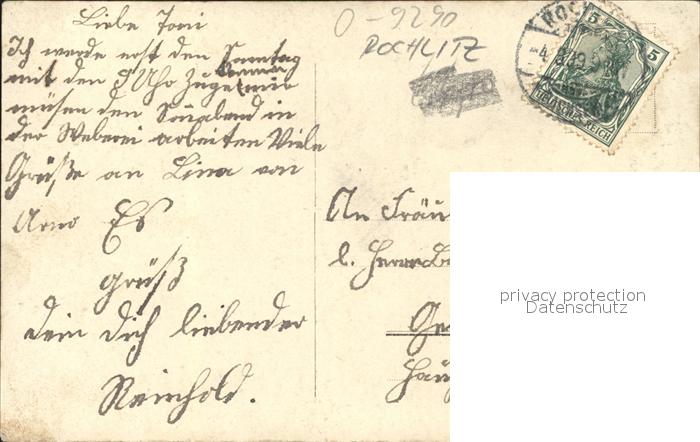 Liebe Toni
Ich werde erst den Sonntag
mit den 8 Uhr Zuge kommen wir
müsen den Sonabend in
der Weberei arbeiten Viele
Grüße an Lina von
Arno Es
grüß
dein dich liebender
Reinhold.
O-9290
ROCHLITZ
5 5
DEUTSCHES REICH
An Fräu
b. Herrn Be
Ge
Häu
privacy protection
Datenschutz